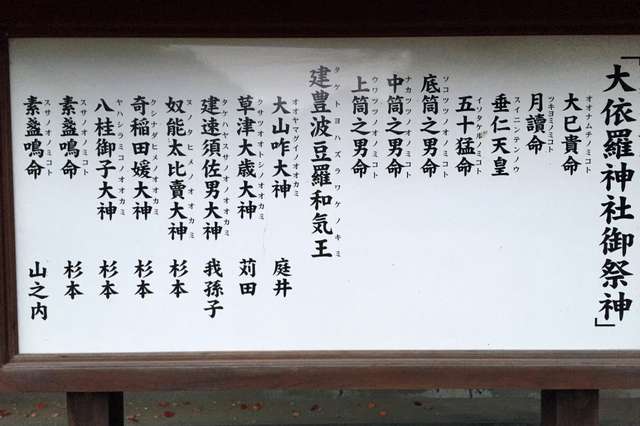 「大依羅神社御祭神」
大巳貴命 オオナムチノミコト
月讀命 ツキヨミノミコト
垂仁天皇 スイニンテンノウ
五十猛命 イソタケルノミコト
底筒之男命 ソコツツノオノミコト
中筒之男命 ナカツツノオノミコト
上筒之男命 ウワツツノオノミコト
建豊波豆羅和気王 タケトヨハズラワケノキミ
大山咋大神 オオヤマグイノオオカミ 庭井
草津大歳大神 クサツオオトシノオオカミ 苅田
建速須佐男大神 タケハヤスサノオノオオカミ 我孫子
奴能太比賣大神 ヌノタヒメノオオカミ 杉本
奇稲田媛大神 クシイナダヒメノオオカミ 杉本
八柱御子大神 ヤハシラミコノオオカミ 杉本
素盞鳴命 スサノオノミコト 杉本
素盞鳴命 スサノオノミコト 山之内